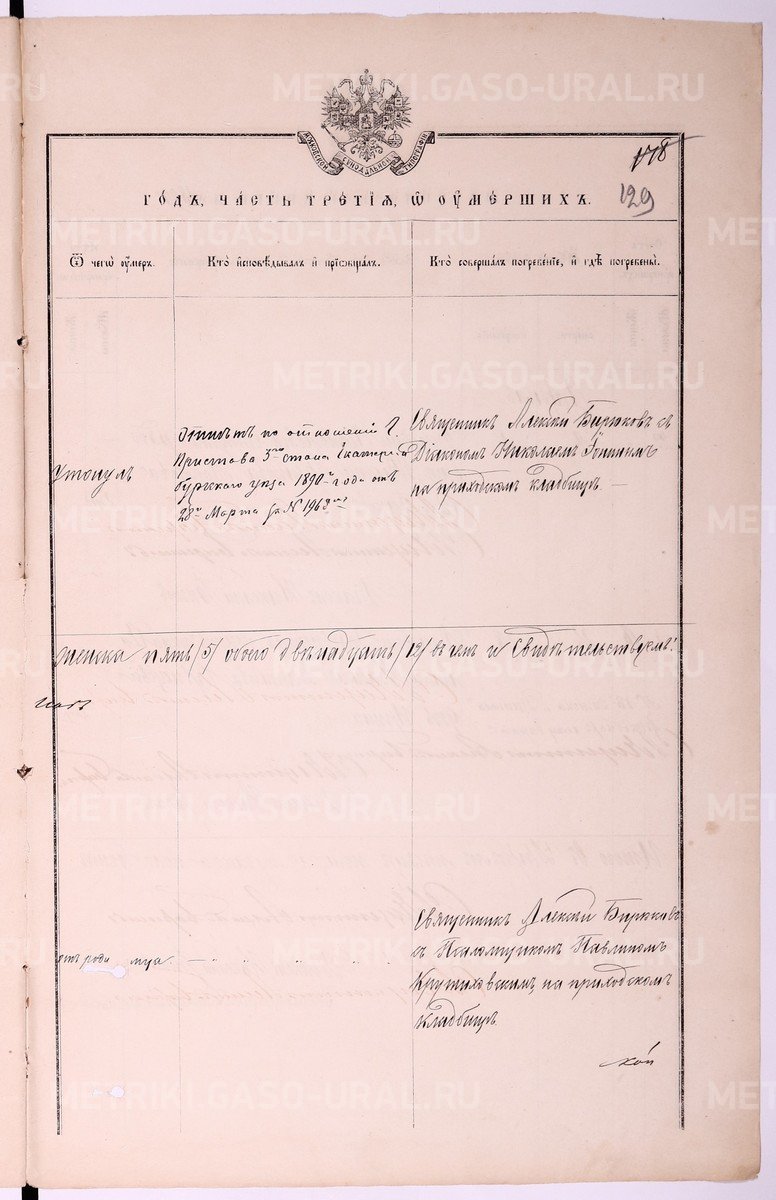 METRIKI.GASO-URAL.RU
МОСКОВСКОЙ СѴНОДАЛЬНОЙ ТИПОГРАФІИ
178
129
ГОДЪ, ЧАСТЬ ТРЕТІЯ, Ѡ ОУМЕРШИХЪ.
Ѿ чегѡ оумеръ.
Кто исповѣдывалъ и пріобщалъ.
Кто совершалъ погребеніе, и гдѣ погребены.
Утонулъ
Отпѣтъ по отношенію Г.
Пристава 3го стана Екатерин
бургскаго уѣзда 1890 года отъ
28го Марта за № 196
Священникъ Алексѣй Бирюковъ съ
Діакономъ Николаемъ
на приходскомъ кладбищѣ. —
женска пять /5/ обоего двѣнадцать /12/ въ чемъ и свидѣтельствуемъ:
отъ роди мца.
Священникъ Алексѣй Бирюковъ
съ Псаломщикомъ Павлиномъ
Крутиховскимъ, на приходскомъ
кладбищѣ.